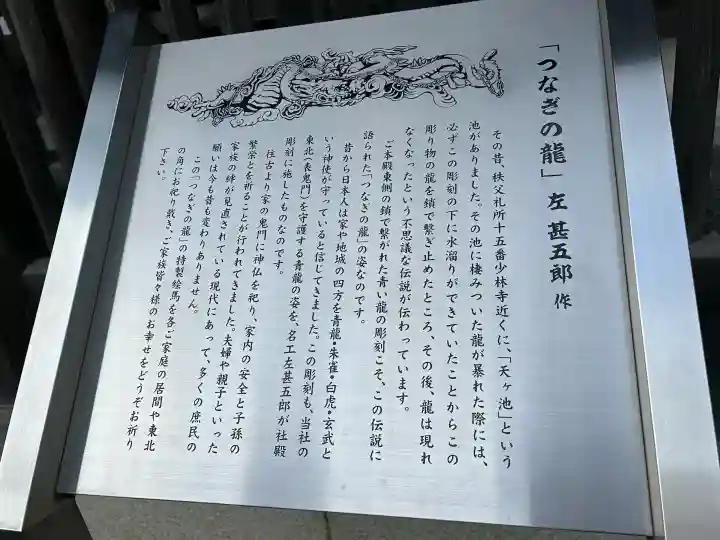 「つなぎの龍」左 甚五郎 作
その昔、秩父札所十五番少林寺近くに、「天ヶ池」という
池がありました。その池に棲みついた龍が暴れた際には、
必ずこの彫刻の下に水溜りができていたことからこの
彫り物の龍を鎖で繋ぎ止めたところ、その後、龍は現れ
なくなったという不思議な伝説が伝わっています。
ご本殿東側の鎖で繋がれた青い龍の彫刻こそ、この伝説に
語られた「つなぎの龍」の姿なのです。
昔から日本人は家や地域の四方を青龍・朱雀・白虎・玄武と
いう神使が守っていると信じてきました。この彫刻も、当社の
東北(表鬼門)を守護する青龍の姿を、名工左甚五郎が社殿
彫刻に施したものなのです。
往古より家の鬼門に神仏を祀り、家内の安全と子孫の
繁栄とを祈ることが行われてきました。夫婦や親子といった
家族の絆が見直されている現代にあって、多くの庶民の
願いは今も昔も変わりありません。
この「つなぎの龍」の特製絵馬を各ご家庭の居間や東北
の角にお祀り戴き、ご家族皆々様のお幸せをどうぞお祈り
下さい。